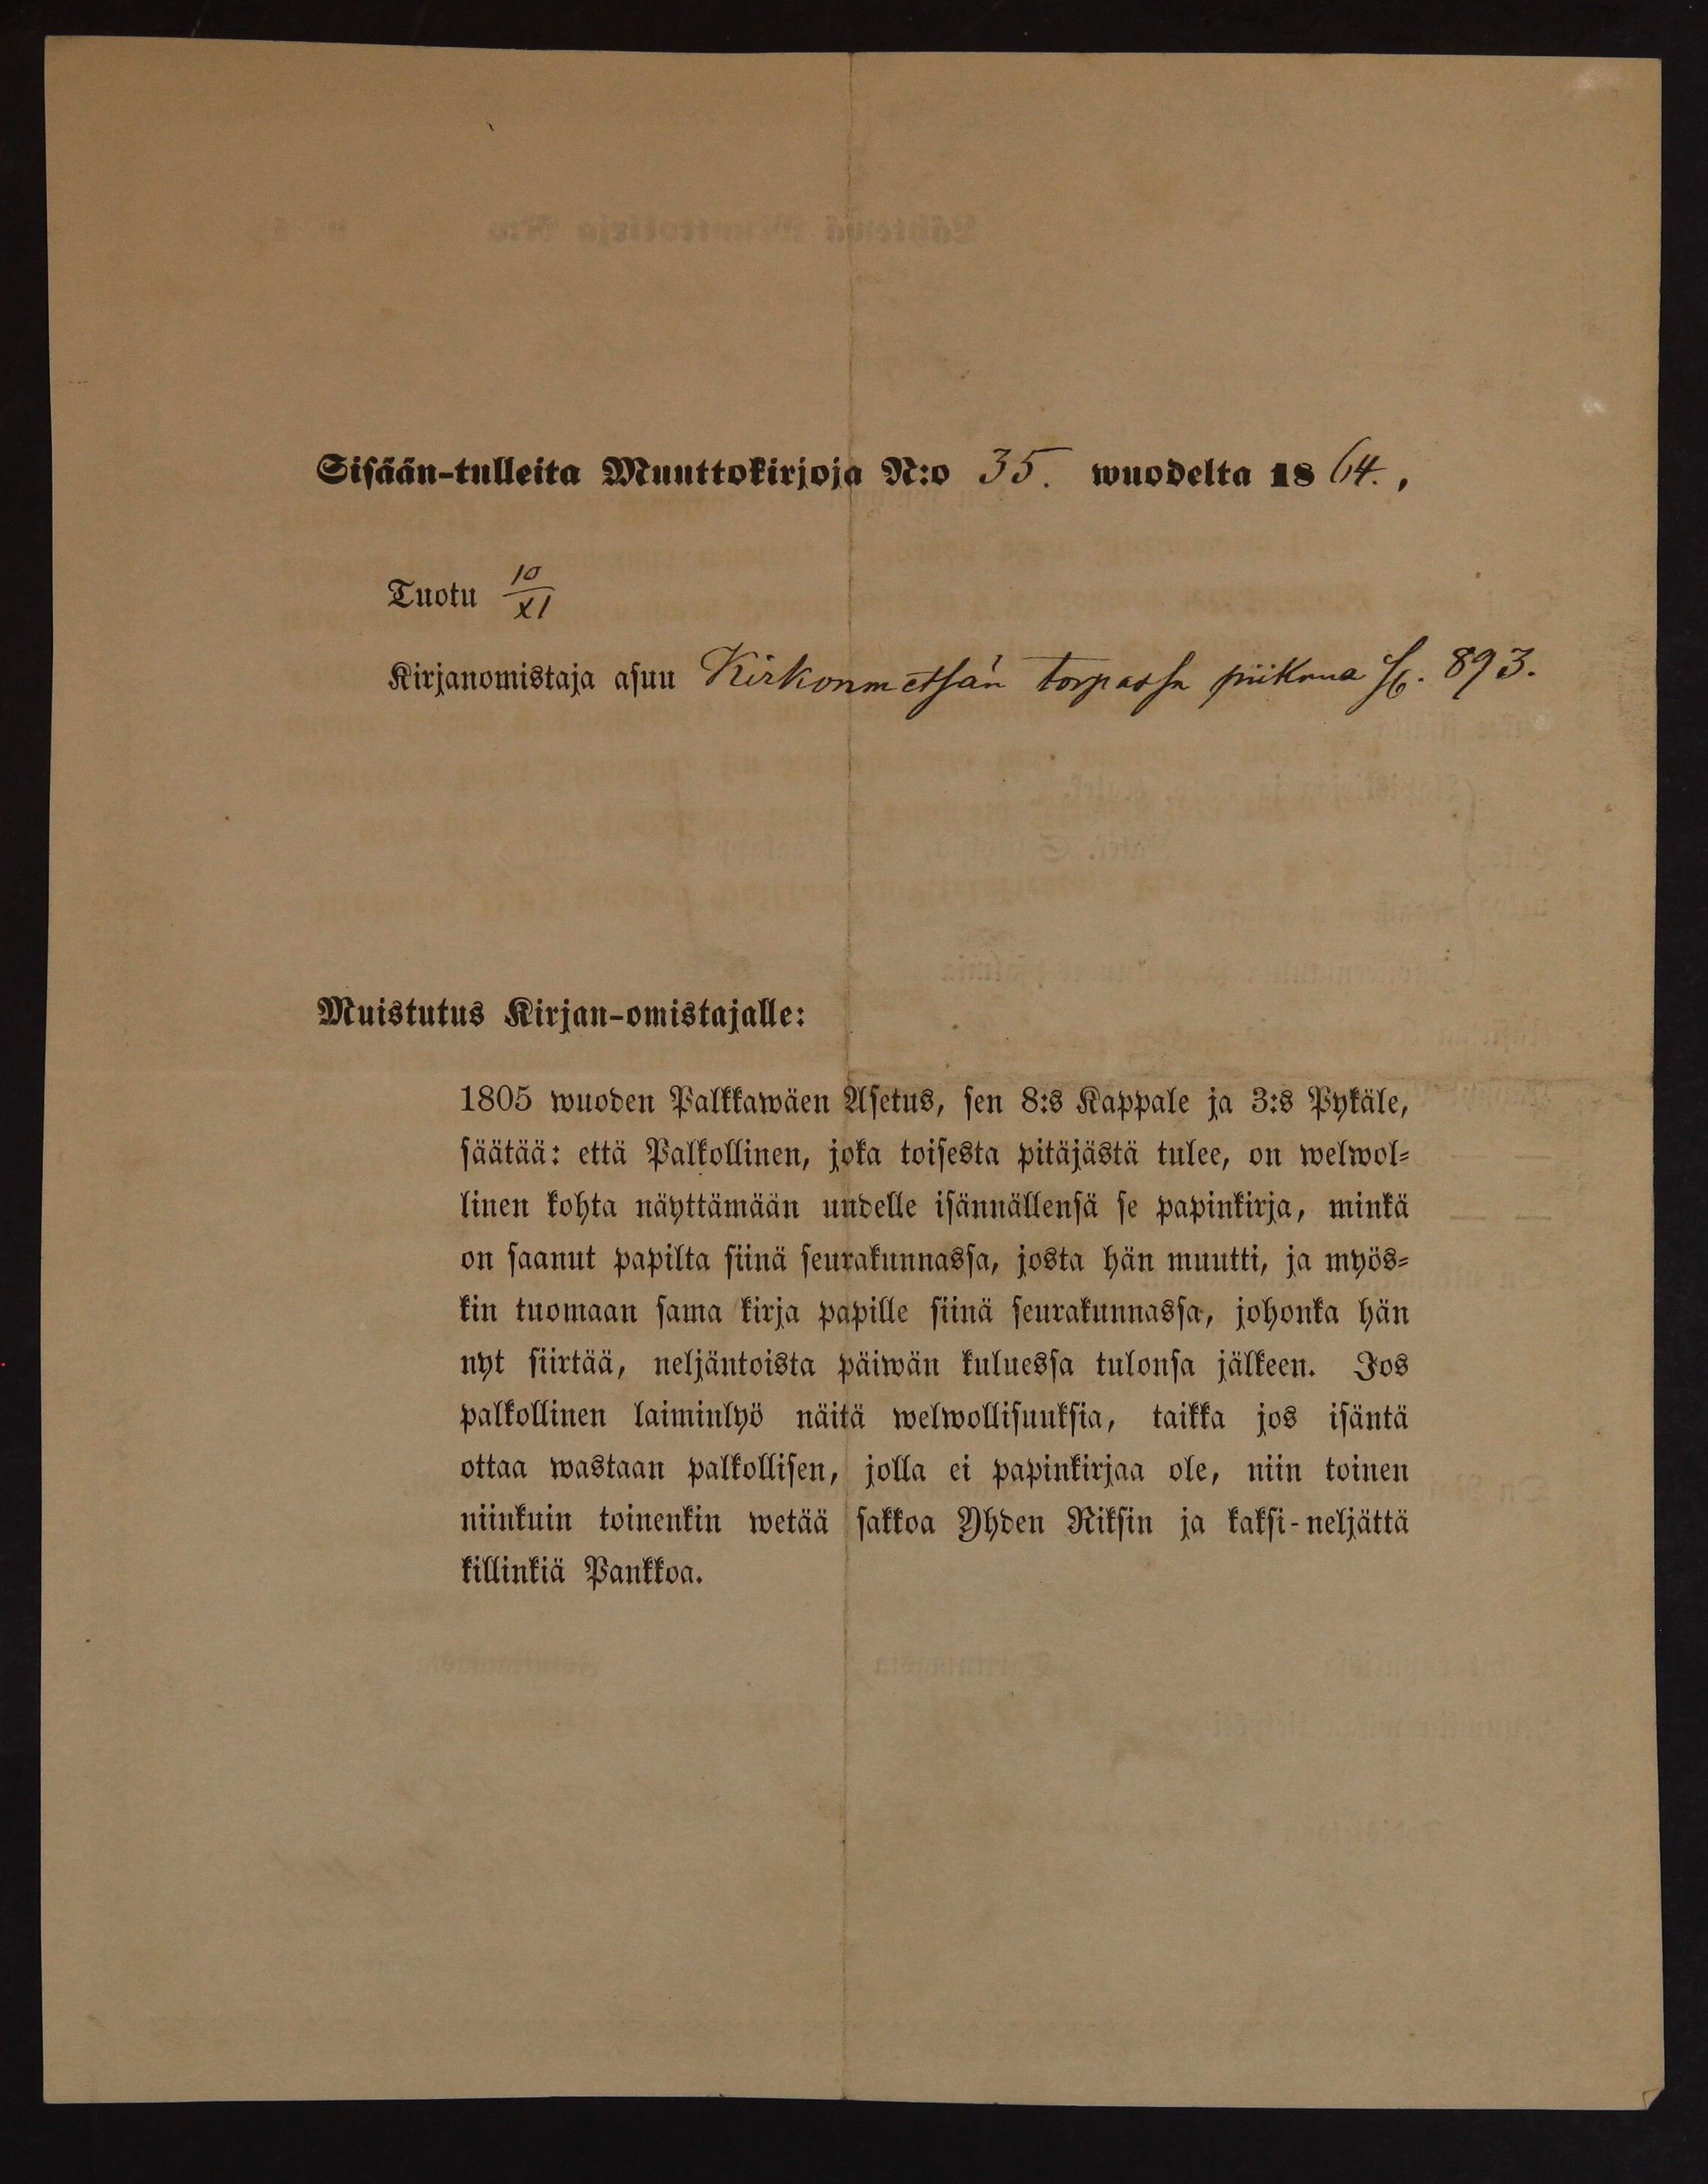 Sisään-tulleita Muuttokirjoja N:o 35. wuodelta 1864.,
Tuotu 10/XI
Kirjanomistaja asuu Kirkonmetsän torpassa piikana S. 893.
Muistutus Kirjan-omistajalle:
1805 wuoden Palkkawäen Asetus, sen 8:s Kappale ja 3:s Pykäle,
säätää: että Palkollinen, joka toisesta pitäjästä tulee, on welwol-
linen kohta näyttämään uudelle isännällensä se papinkirja, minkä
on saanut papilta siinä seurakunnassa, josta hän muutti, ja myös-
kin tuomaan sama kirja papille siinä seurakunnassa, johonka hän
nyt siirtää, neljäntoista päiwän kuluessa tulonsa jälkeen. Jos
palkollinen laiminlyö näitä welwollisuuksia, taikka jos isäntä
ottaa wastaan palkollisen, jolla ei papinkirjaa ole, niin toinen
niinkuin toinenkin wetää sakkoa Yhden Riksin ja kaksi-neljättä
killinkiä Pankkoa.